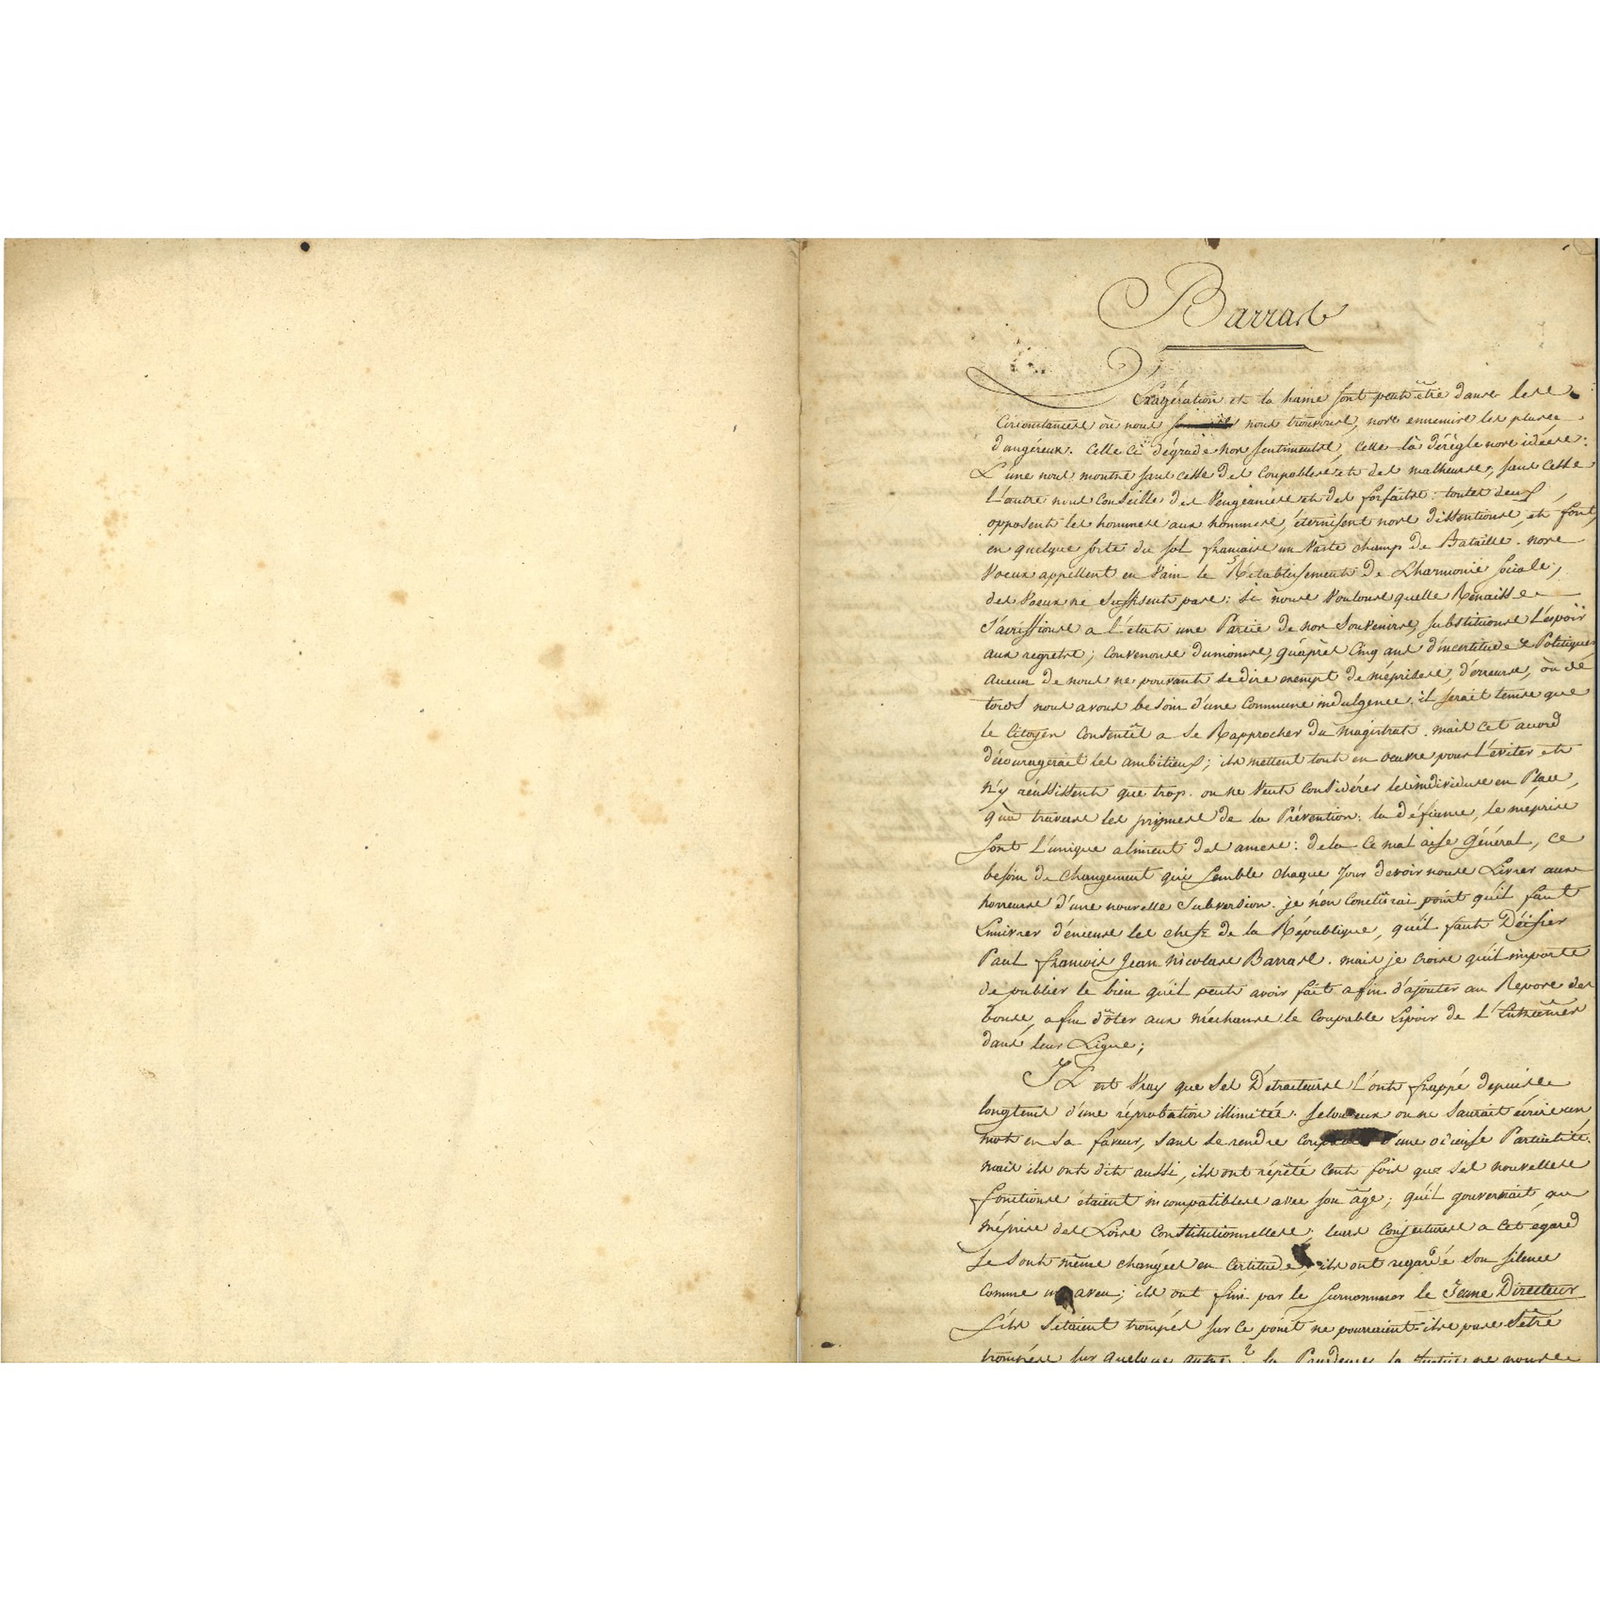 Barras
L'Exagération et la haine sont peutêtre dans les
Circonstances où nous nous trouvons, nos ennemis les plus
dangéreux. Celle ci dégrade nos sentiments, celle là dérègle nos idées:
L'une nous montre sans cesse des Coupables et des malheurs, sans cesse
l'autre nous Conseille des Vengeances et des forfaits: toutes deux
opposent les hommes aux hommes, éternisent nos dissentions, et font
en quelque sorte du sol français un Vaste champ de Bataille. nos
Voeux appellent en Vain le Rétablissement de L'harmonie sociale;
des Voeux ne suffisent pas: si nous Voulons quelle Renaisse
Sacriffions a L'état une Partie de nos Souvenirs, substituons L'espoir
aux regrets; Convenons dumoins, qu'après Cinq ans d'incertitudes Politiques
aucun de nous ne pouvant se dire exempt de méprises, d'erreurs, où de
torts nous avons besoin d'une Commune indulgence. il serait tems que
le Citoyen Consentît a se Rapprocher du magistrat. mais cet accord
découragerait les ambitieux; ils mettent tout en oeuvre pour l'éviter et
n'y réussissent que trop. on ne Veut Considérer les individus en Place,
qu'a travers les prismes de la Prévention: la défiance, le mépris
sont L'unique aliment des ames: dela Ce mal aise Général, ce
besoin de Changement qui semble Chaque Jour devoir nous Livrer aux
horreurs d'une nouvelle subversion. je n'en Conclurai point qu'il faut
Enivrer d'encens les chefs de la République, qu'il faut Déifier
Paul françois Jean Nicolas Barras. mais je crois qu'il importe
de publier le bien qu'il peut avoir fait afin d'ajouter au Repos des
bons, afin d'ôter aux méchans le Coupable Espoir de L'Entraîner
dans leur Ligue;
Il est Vray que ses Détracteurs l'ont frappé depuis
longtems d'une réprobation illimitée: selon eux on ne saurait écrire un
mot en sa faveur, sans se rendre d'une odieuse Partialité.
mais ils ont dit aussi, ils ont répété Cent fois que ses nouvelles
fonctions étaient incompatibles avec son âge; qu'il gouvernait au
mépris des Loix Constitutionnelles; leurs Conjectures a Cet égard
se sont même changées en Certitude, ils ont regardé son silence
Comme un aveu; ils ont fini par le surnommer le Jeune Directeur
s'ils s'étaient trompés sur Ce point ne pourraient ils pas s'être
trompés sur quelque autre? la Prudence, la Justice ne nous